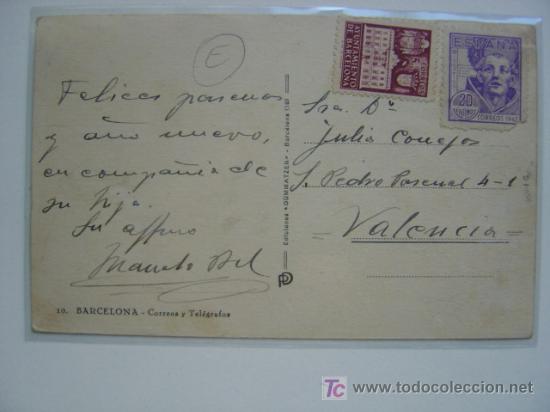 E
Felices pascuas
y año nuevo,
en compañía de
su hija.
Su affmo
Manuel
10. BARCELONA - Correos y Telégrafos
Barcelona
AYUNTAMIENTO
DE BARCELONA
ESPAÑA
20
CORREOS
Sra. Dª
Julia Conejos
S. Pedro Pascual 4-1
Valencia
TC www.todocoleccion.net